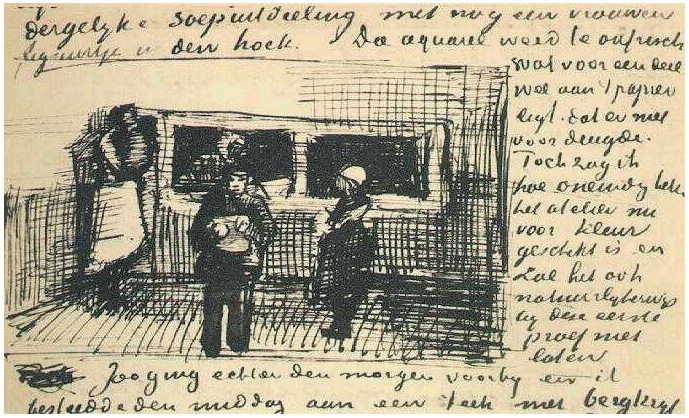 dergelyke soepuitdeeling met nog een vrouwen
figuurtje in den hoek. Die aquarel werd te onfrisch
wat voor een deel
wel aan 't papier
ligt. dat er niet
voor deugde.
Toch zag ik
hoe oneindig beter
het atelier nu
voor kleur
geschikt is en
zal het ook
natuurlykerwys
by deze eerste
proef niet
laten
Zoo ging echter den morgen voorby en ik
besteedde den middag aan een teek. met bergkryt